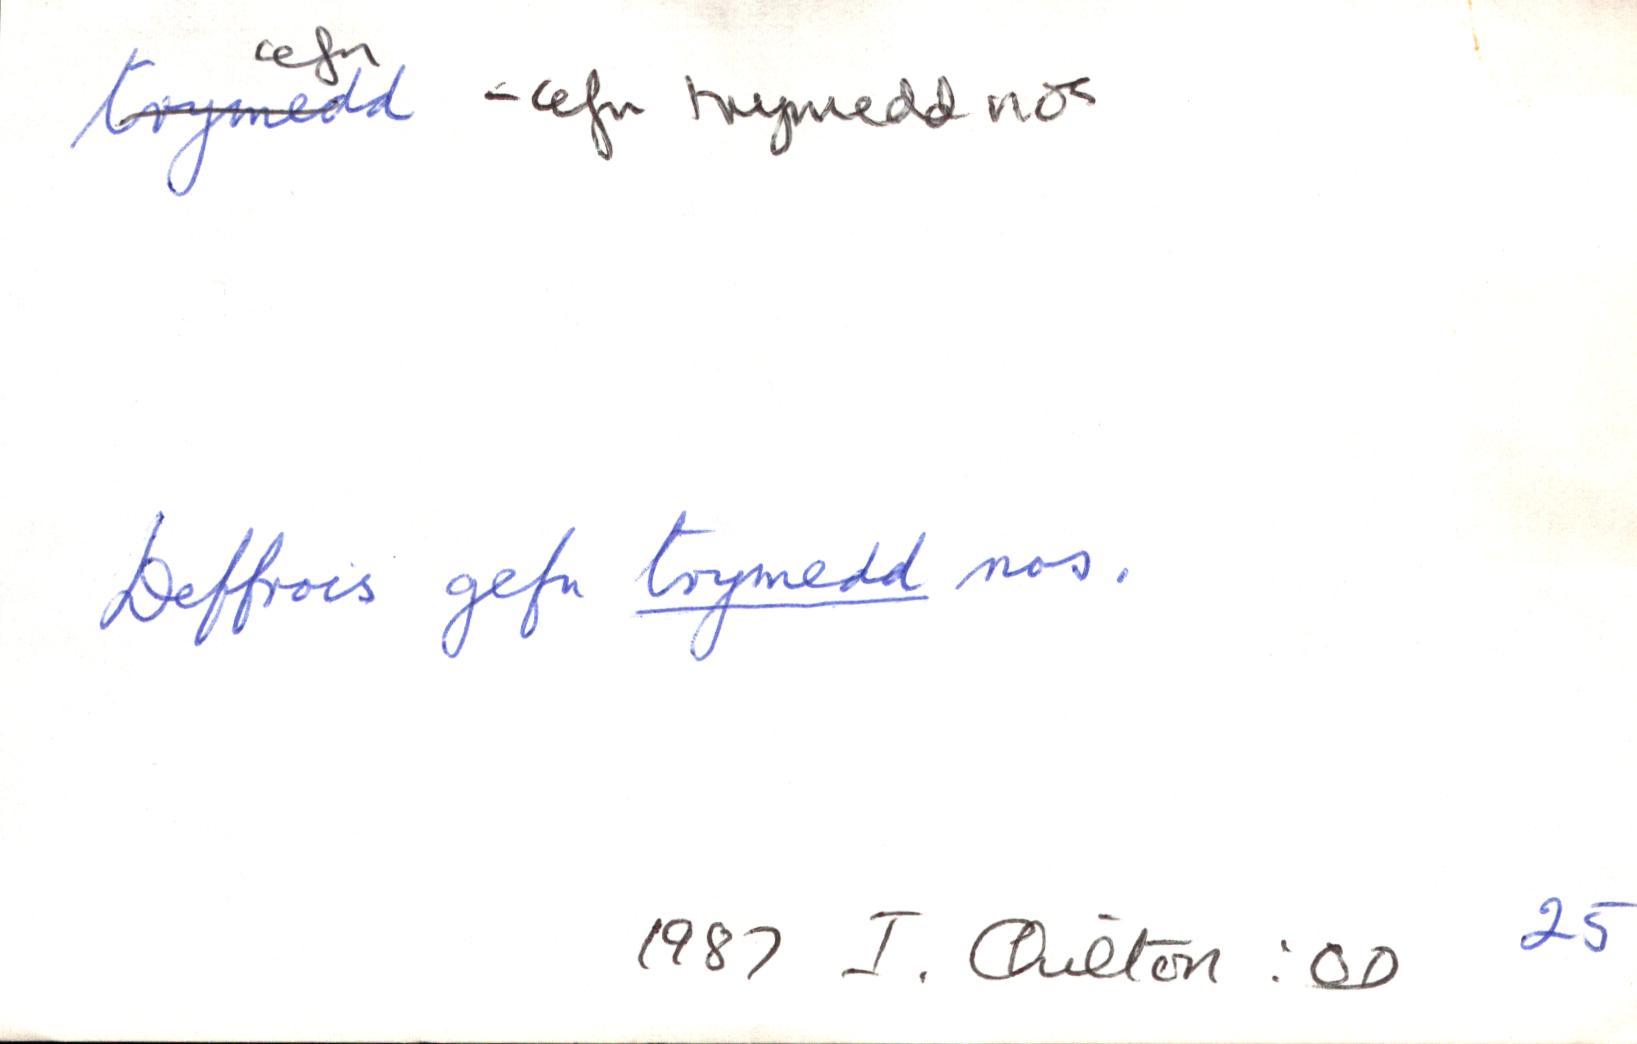 cefn
trymedd - cefn trymedd nos
Deffrois gefn trymedd nos.
1987 I. Chilton : OD 25